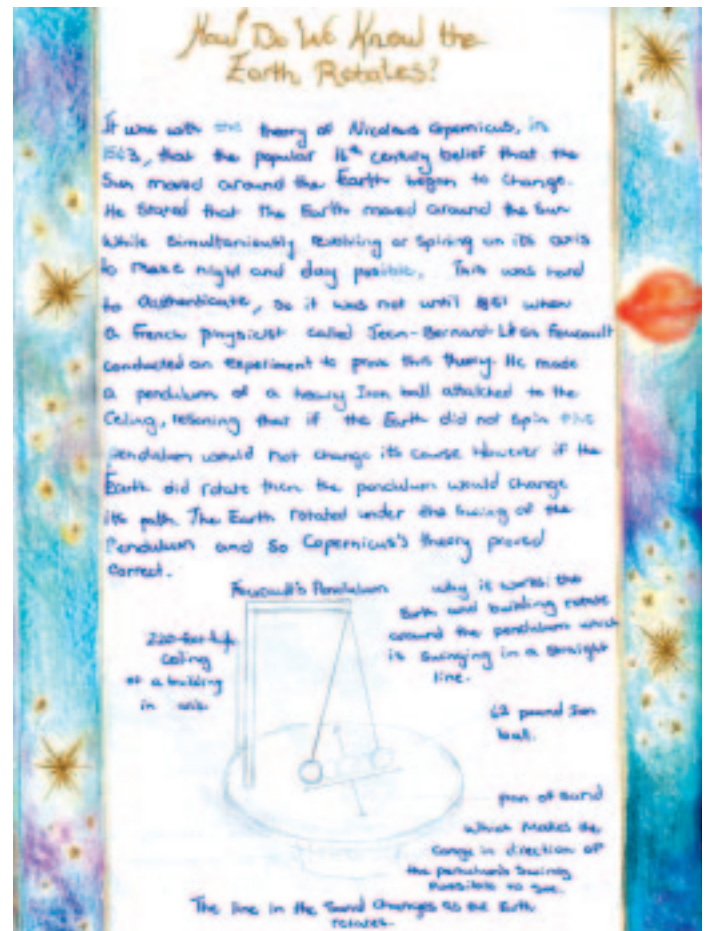 How Do We Know the
Earth Rotates?
It was with the theory of Nicolaus Copernicus, in
1543, that the popular 16th century belief that the
Sun moved around the Earth began to change.
He Stared that The Earth moved around the Sun
While Simultaniously revolving or Spining on its axis
to Make night and day posible. This was hard
to Authenticate, so it was not until 1851 when
a French physicist called Jean-Bernard-Léon Foucault
conducted an experiment to prove this theory. He made
a pendulum of a heavy Iron ball attatched to the
Celing, resoning that if the Earth did not Spin the
pendulum would not change its course However if the
Earth did rotate then the pendulum would change
its path. The Earth rotated under the Swing of the
Pendulum and So Copernicus's theory proved
Correct.
Foucault's Pendulum
why it works: the
Earth and building rotate
around the pendulum which
is Swinging in a Straight
line.
Celing
of a building
in
62 pound Iron
ball.
pan of Sand
which Makes the
in direction of
the Swing
Possible to See.
The line in the Sand Changes as the Earth
rotates.